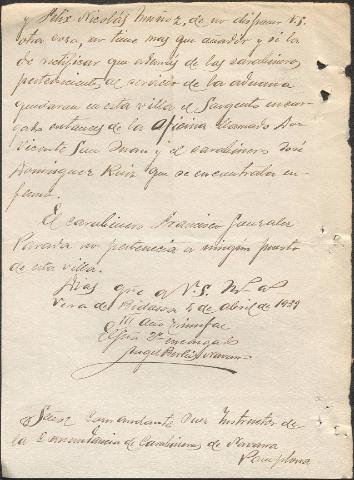 y Felix Nicolás Muñoz, de no disponer V.S.
otra cosa, no tiene mas que añadir y si la
de rectificar que además de los carabineros
pertenecientes al servicio de la aduana
quedaron en esta villa el Sargento encar-
gado entonces de la Oficina llamado Don
Vicente San Juan y el carabinero José
Dominguez Ruiz que se encontraba en-
fermo.
El carabinero Francisco Gonzalez
Parada no pertenecia a ningun puesto
de esta villa.
Dios gue a V.S. m. a.
Vera de Bidasoa 4 de Abril de 1939
III año triunfal
El
Angel
Señor Comandante Juez Instructor de
la Comandancia de Carabineros de Navarra
Pamplona